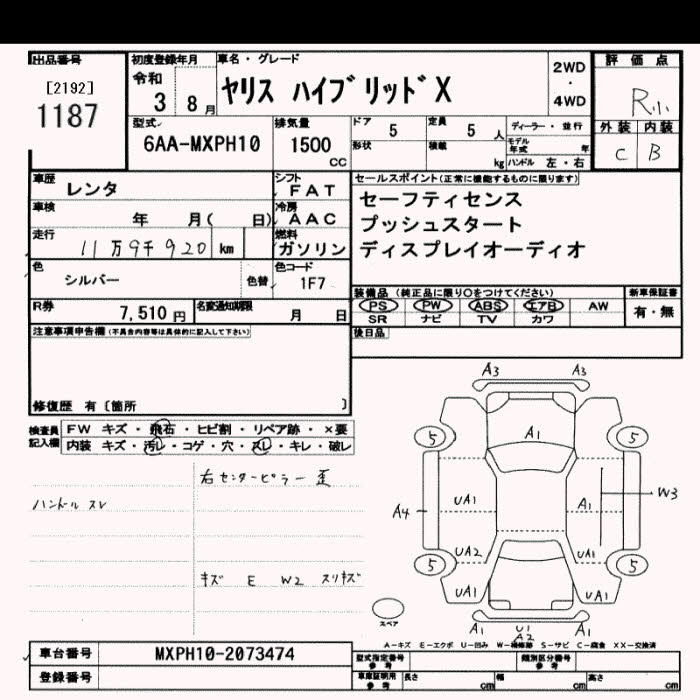 出品番号
[2192]
1187
初度登録年月
令和
3 8月
車名・グレード
ヤリス ハイブリッドX
2WD
・
4WD
評価点
R小
外装 内装
C B
型式
6AA-MXPH10
排気量
1500
CC
ドア 5
定員 5 人
ディーラー・並行
形状
積載 kg
モデル年式 年
ハンドル 左・右
車歴 レンタ
シフト FAT
車検 年 月( 日)
冷房 AAC
走行 11万9千920 km
燃料 ガソリン
色 シルバー 色替
色コード 1F7
R券 7,510 円
名変通知期限 月 日
セールスポイント(正常に機能するものに限ります)
セーフティセンス
プッシュスタート
ディスプレイオーディオ
装備品(純正品に限り○をつけてください)
新車保証書
PS PW ABS エアB AW
有・無
SR ナビ TV カワ
後日品
注意事項申告欄(不具合内容等は具体的に記入して下さい)
修復歴 有〔箇所 〕
検査員記入欄
FW キズ・飛石・ヒビ割・リペア跡・×要
内装 キズ・汚レ・コゲ・穴・スレ・キレ・破レ
右センターピラー歪
ハンドルスレ
キズ E W2 スリキズ
A3 A3
5 A1 5
UA1 A1 W3
A4
UA2 UA1
5 5
UA1 UA1
A1 U1 A1
A2
スペア
A-キズ E-エクボ U-凹み W-補修跡 S-サビ C-腐食 XX-交換済
車台番号 MXPH10-2073474
登録番号
型式指定番号 参考
類別区分番号 参考
車庫証明用 参考
長さ cm 幅 cm 高さ cm